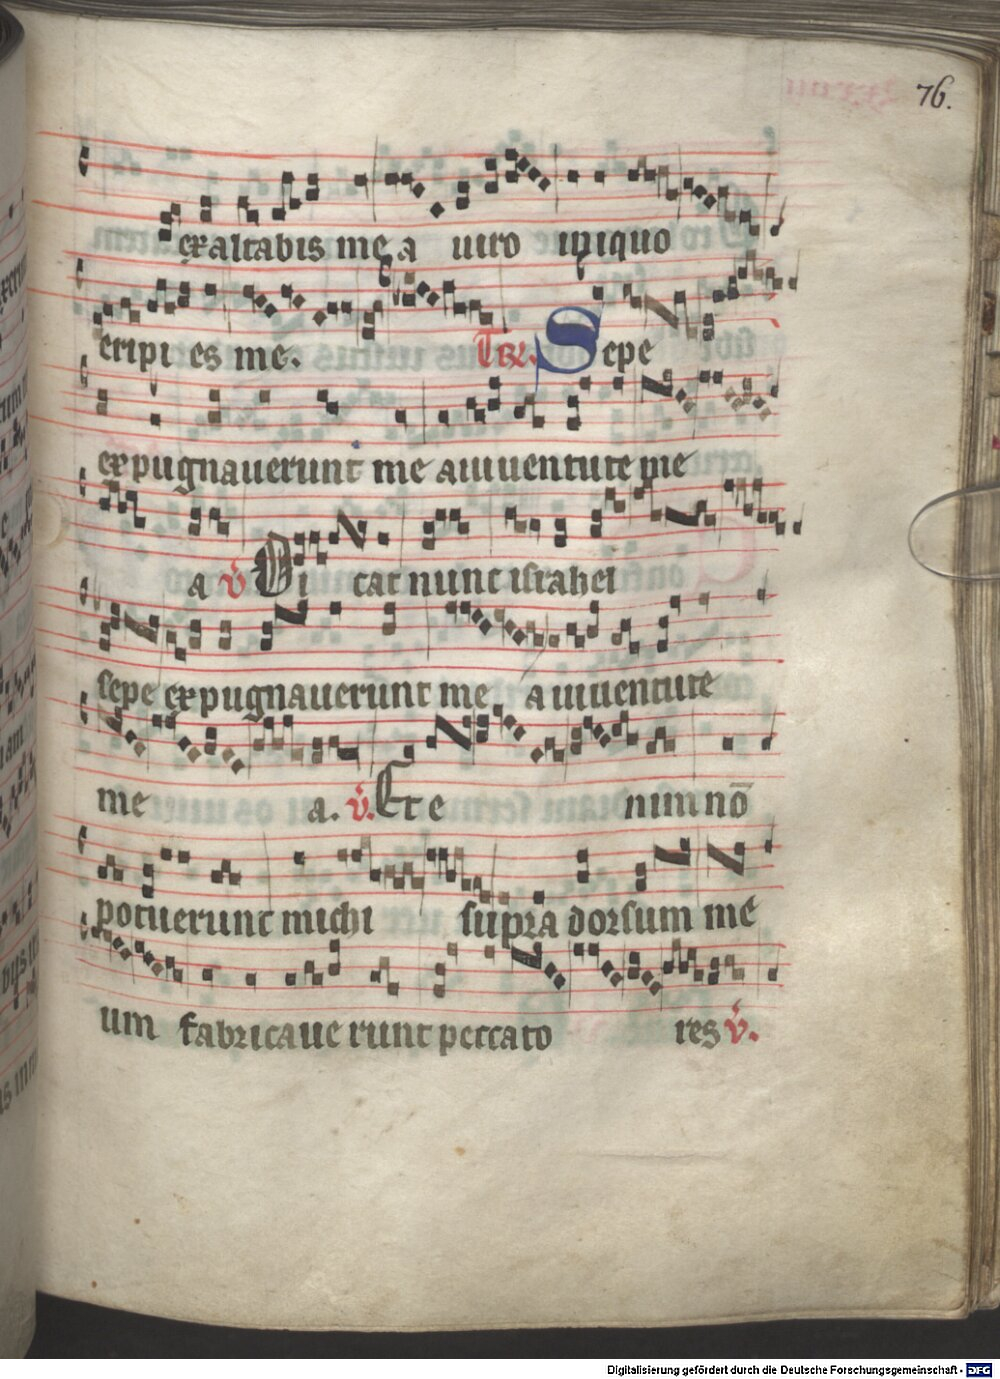 76.
exaltabis me a uiro iniquo
eripi es me. Tr. Sepe
expugnauerunt me a iuuentute me
a v̇ Di cat nunc israhel
sepe expugnauerunt me a iuuentute
me a. v̇. Et e nim nō
potuerunt michi supra dorsum me
um fabricaue runt peccato res v̇.
Digitalisierung gefördert durch die Deutsche Forschungsgemeinschaft - DFG